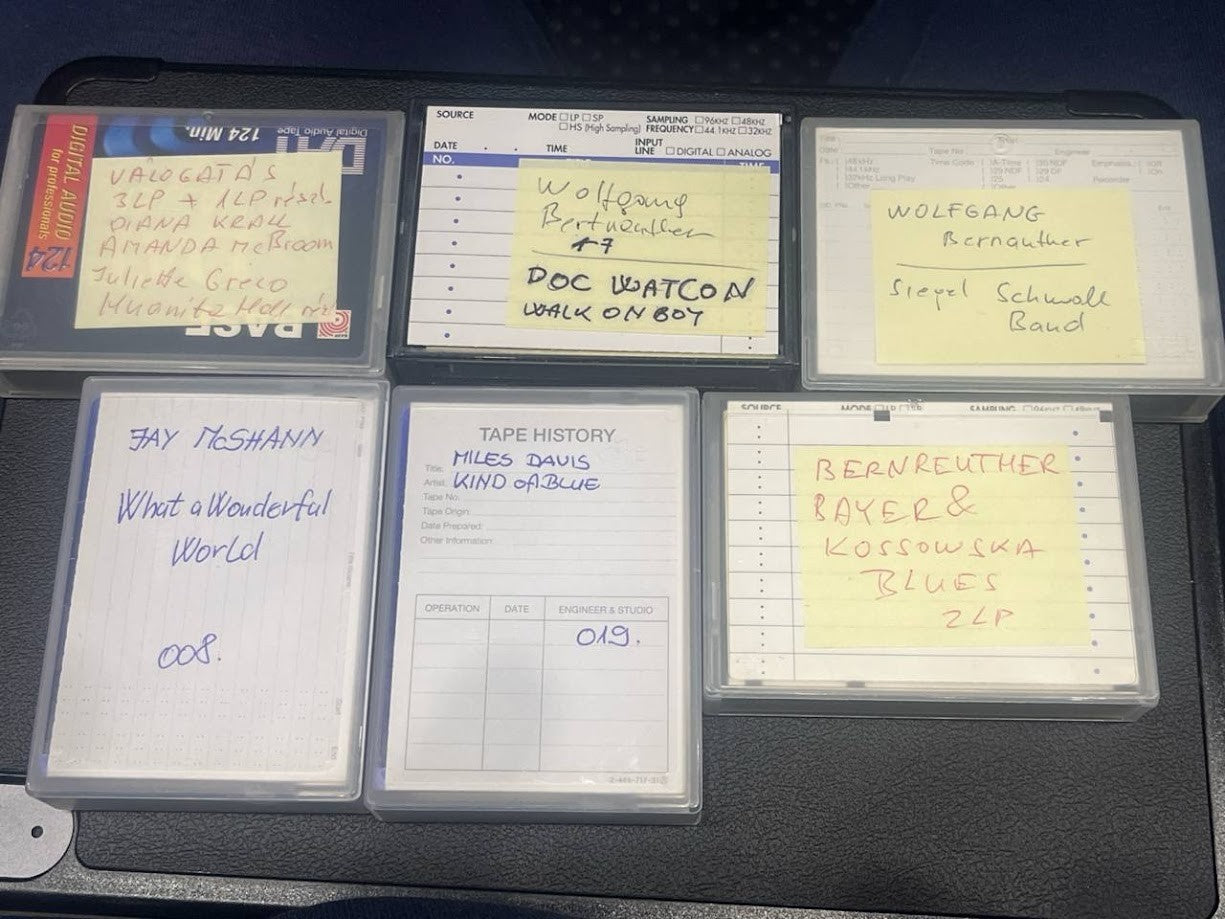 DIGITAL AUDIO
for professionals
124
124 Min.
DAT
Digital Audio Tape
VÁLOGATÁS
3LP + 1LP
DIANA KRALL
AMANDA McBroom
Juliette Greco
BASF
SOURCE MODE □ LP □ SP SAMPLING □ 96KHZ □ 48KHZ
□ HS (High Sampling) FREQUENCY □ 44.1KHZ □ 32KHZ
DATE . . TIME INPUT LINE □ DIGITAL □ ANALOG
NO. TIME
Wolfgang
DOC WATCON
WALK ON BOY
Date Tape No Engineer
48kHz Time Code Emphasis
44.1kHz Recorder
32kHz Long Play
Other
WOLFGANG
Bernauther
Siegel Schwall
Band
JAY McSHANN
What a Wonderful
World
008.
TAPE HISTORY
Title: MILES DAVIS
Artist: KIND of BLUE
Tape No.
Tape Origin:
Date Prepared:
Other Information:
OPERATION DATE ENGINEER & STUDIO
019.
SOURCE MODE □ LP □ SP SAMPLING □ 96KHZ □ 48KHZ
BERNREUTHER
BAYER &
KOSSOWSKA
BLUES
2LP